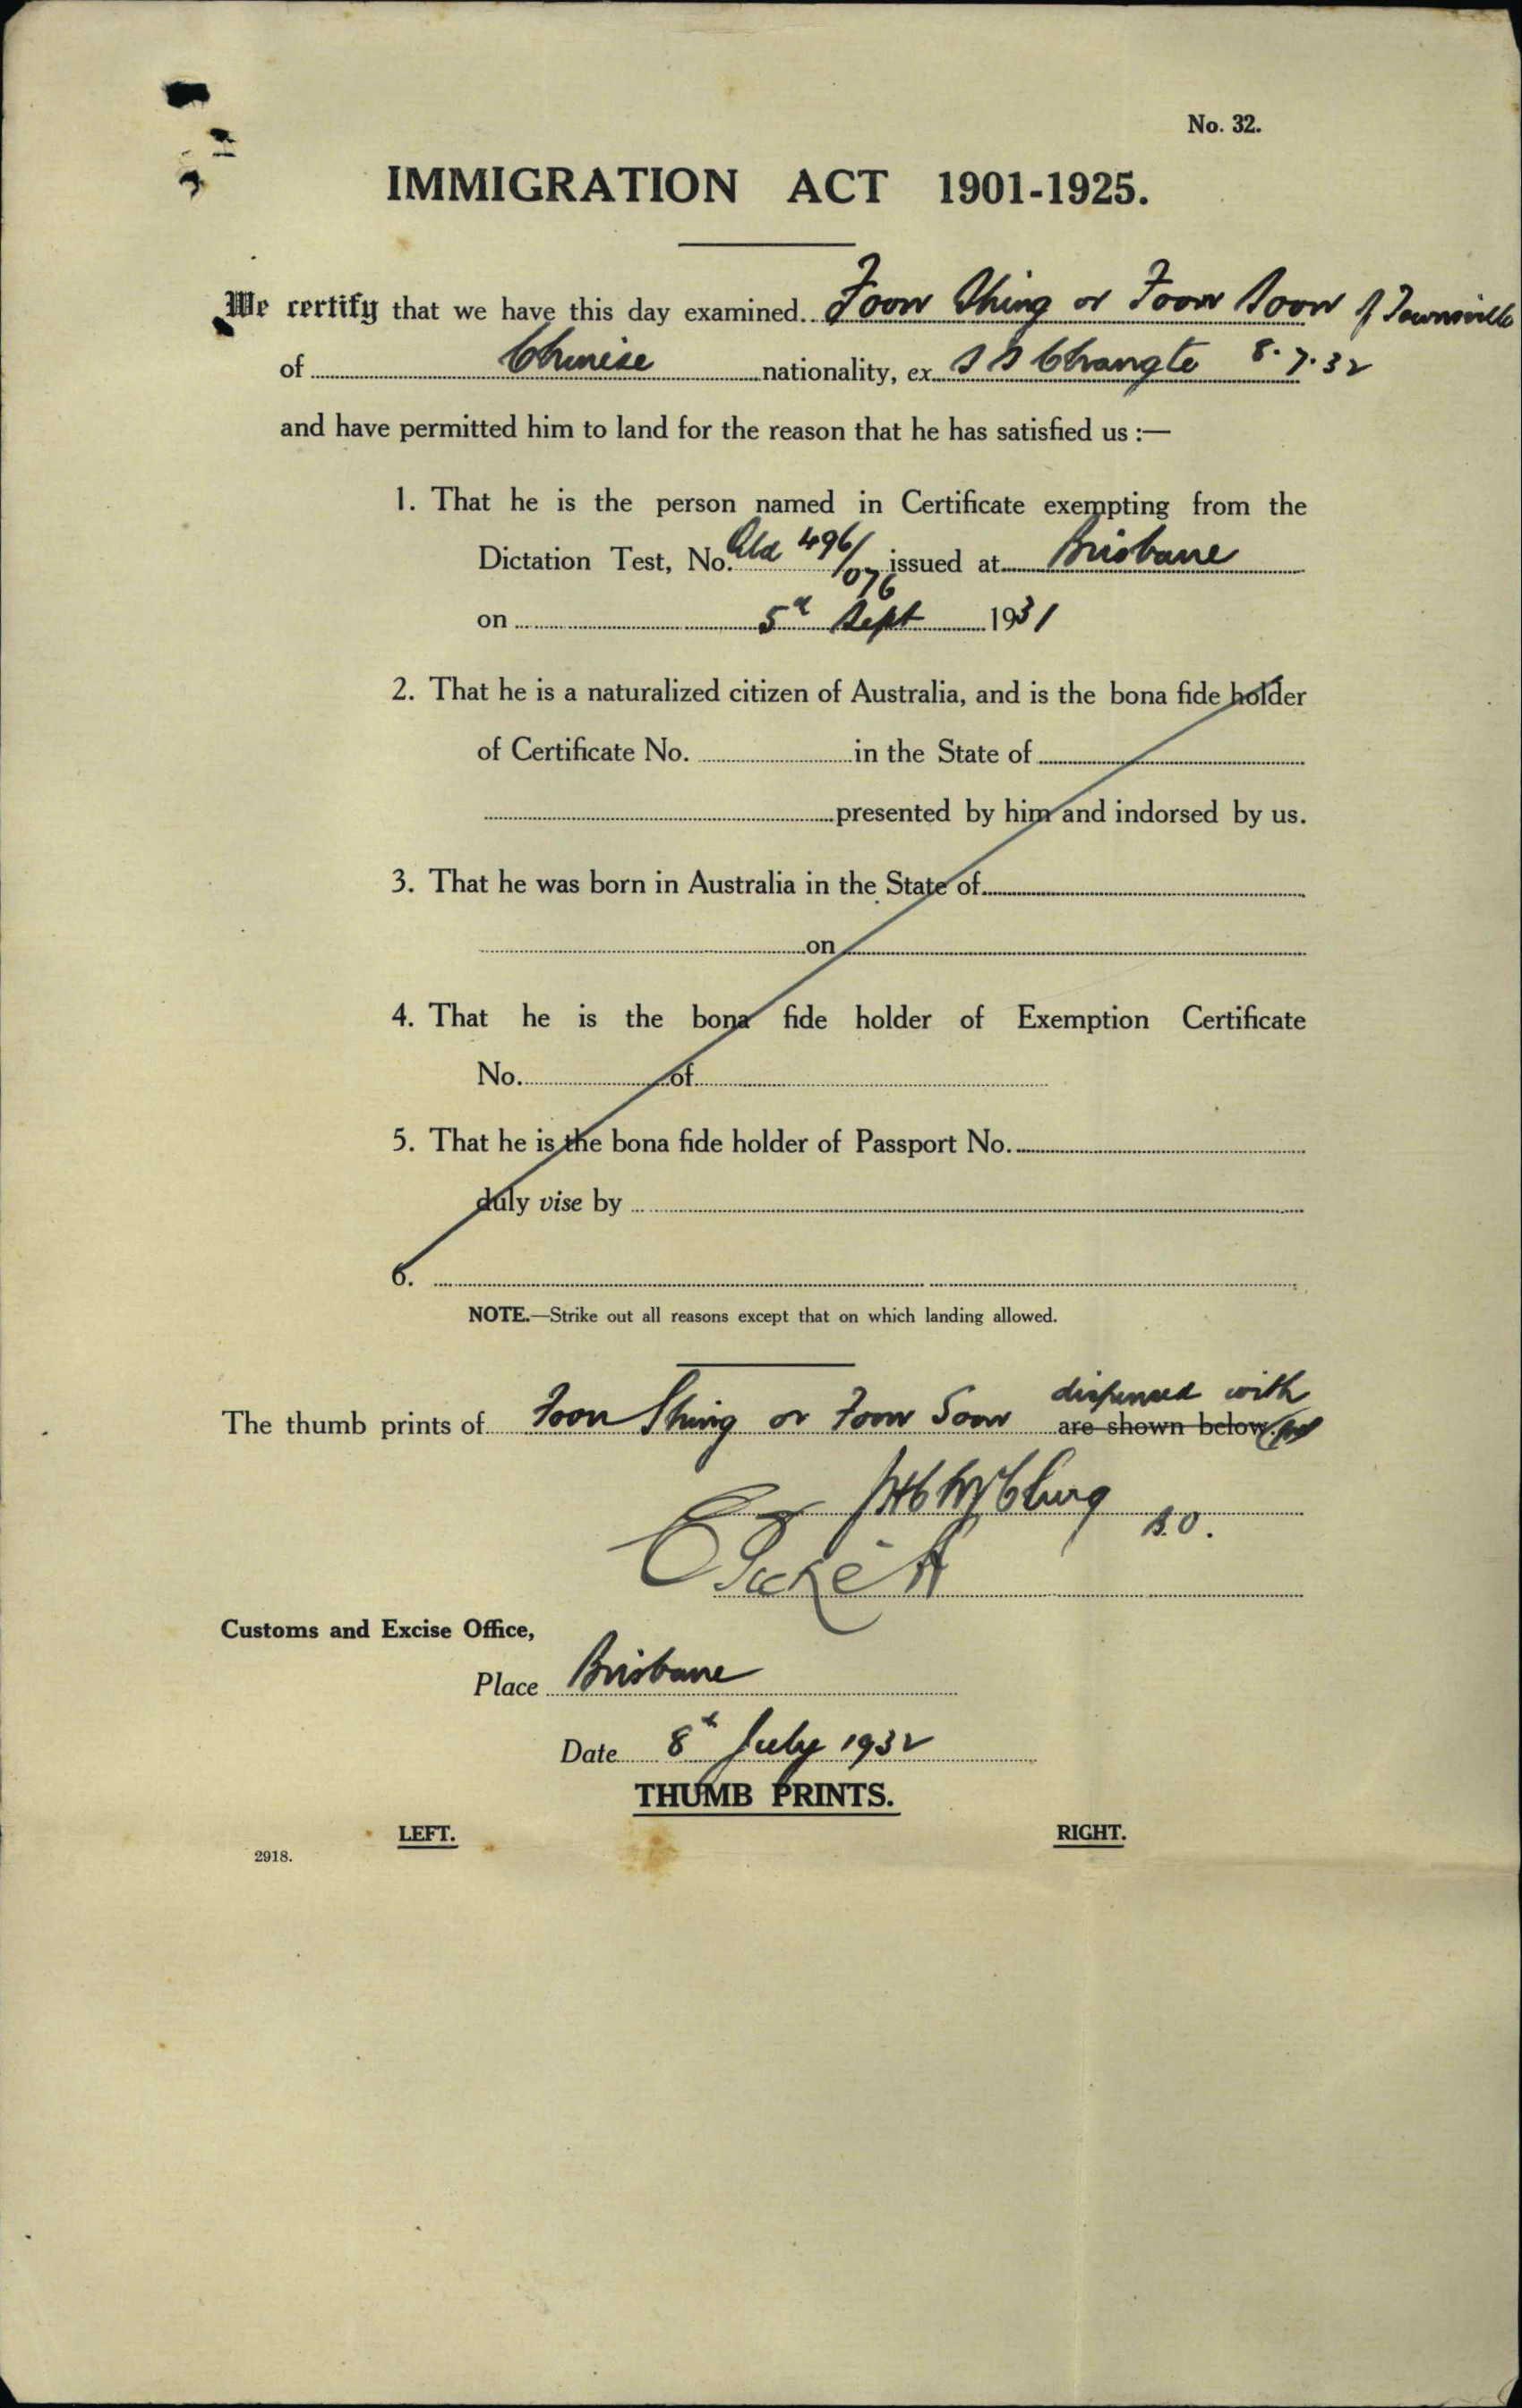 No. 32.
IMMIGRATION ACT 1901-1925.
We certify that we have this day examined Foon Shing or Foon Soon of Townsville
of Chinese nationality, ex S S Changte 8.7.32
and have permitted him to land for the reason that he has satisfied us :—
1. That he is the person named in Certificate exempting from the
Dictation Test, No. Qld 496/076 issued at Brisbane
on 5th Sept 1931
2. That he is a naturalized citizen of Australia, and is the bona fide holder
of Certificate No. in the State of
presented by him and indorsed by us.
3. That he was born in Australia in the State of
on
4. That he is the bona fide holder of Exemption Certificate
No. of
5. That he is the bona fide holder of Passport No.
duly vise by
6.
NOTE.—Strike out all reasons except that on which landing allowed.
dispensed with
The thumb prints of Foon Shing or Foon Soon are shown below.
B.O.
Customs and Excise Office,
Place Brisbane
Date 8th July 1932
THUMB PRINTS.
LEFT. RIGHT.
2918.